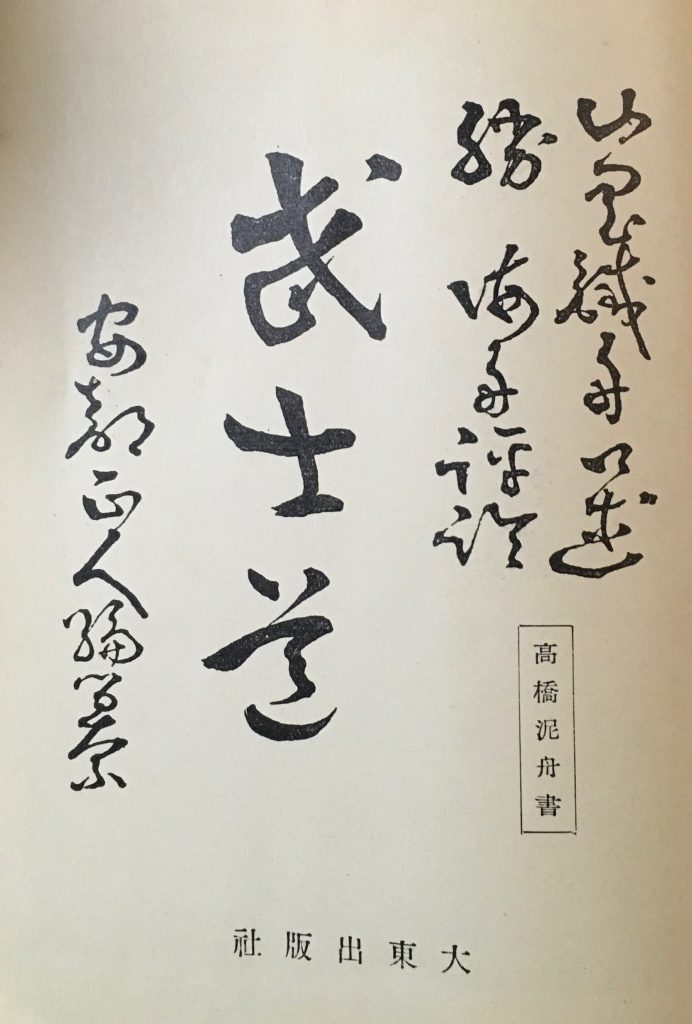 山岡鐵舟口述
勝海舟評論
高橋泥舟書
武士道
安部正人編纂
大東出版社